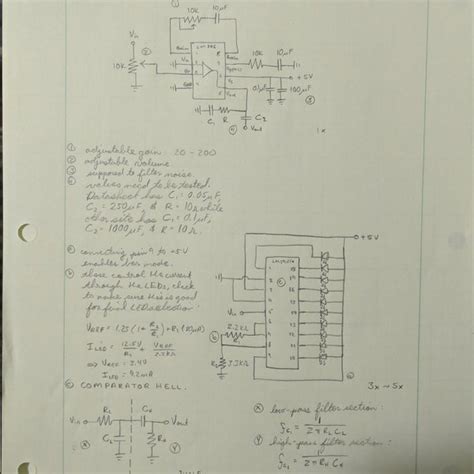 ①
10K 10µF
LM386
Vin
10K
②
Gain Gain
Vin Bypass
Gnd Vout
10K 10µF
+5V
0.1µF 100µF
④
C1 R C2
③ Vout
1x
① adjustable gain: 20 - 200
② adjustable volume
③ supposed to filter noise
④ values need to be tested.
Datasheet has C1 = 0.05µF,
C2 = 250µF, & R = 10Ω while
other site has C1 = 0.1µF,
C2 = 1000µF, & R = 10Ω.
ⓐ connecting pin 9 to +5V
enables bar mode.
ⓑ these control the current
through the LEDs, click
to make sure this is good
for final LED selection
VREF = 1.25 (1 + R2/R1) + R2 (80µA)
ILED = 12.5V/R1 + VREF/2.2KΩ
⇒ VREF = 3.4V
ILED =
ⓒ COMPARATOR HELL.
+5V
LM3914
Vin
ⓑ 2.2KΩ
R1
R2 3.3KΩ
3x ~ 5x
Vin RL CH Vout
CL RH
Ⓧ Ⓨ
Ⓧ low-pass filter section:
fc1 = 1 / 2π RL CL
Ⓨ high-pass filter section:
fc2 = 1 / 2π RH CH